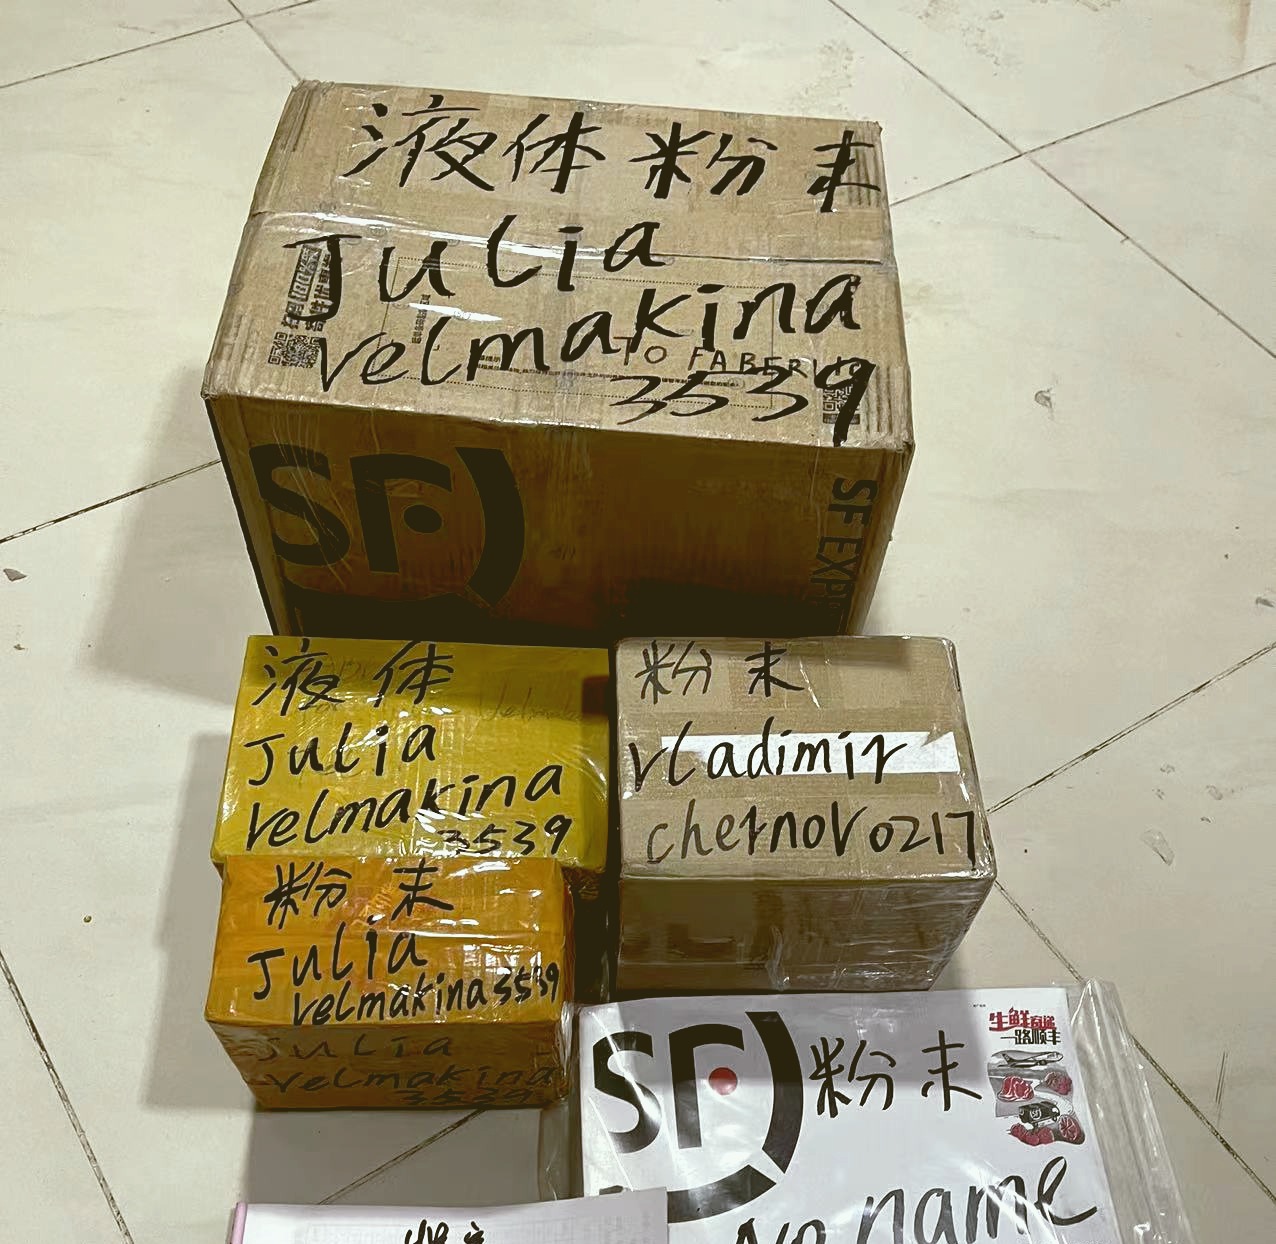 液体粉末
Julia
velmakina
TO FABERLIC
3539
SF
SF EXP
液体
Julia
velmakina
3539
粉末
vladimir
chernov0217
粉末
Julia
velmakina3539
Julia
velmakina
3539
SF
粉末
生鲜高递
一路顺丰
No name